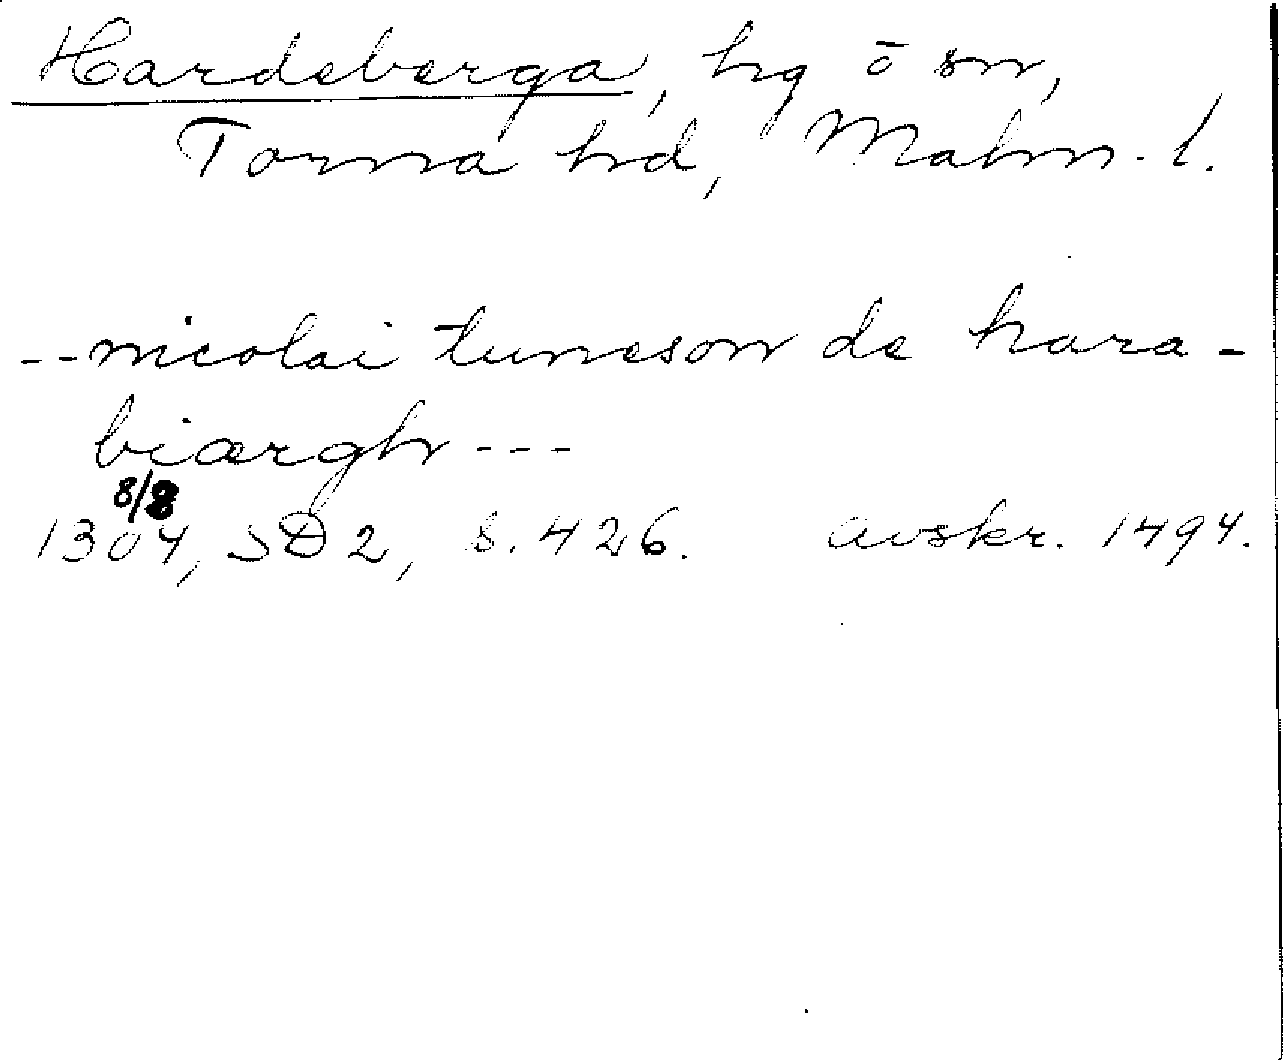 Hardeberga, hg o sn,
Torna hd, Malm. l.
--nicolai tuneson de hara-
biærgh---
8/8
1304, SD 2, s. 426. avskr. 1494.